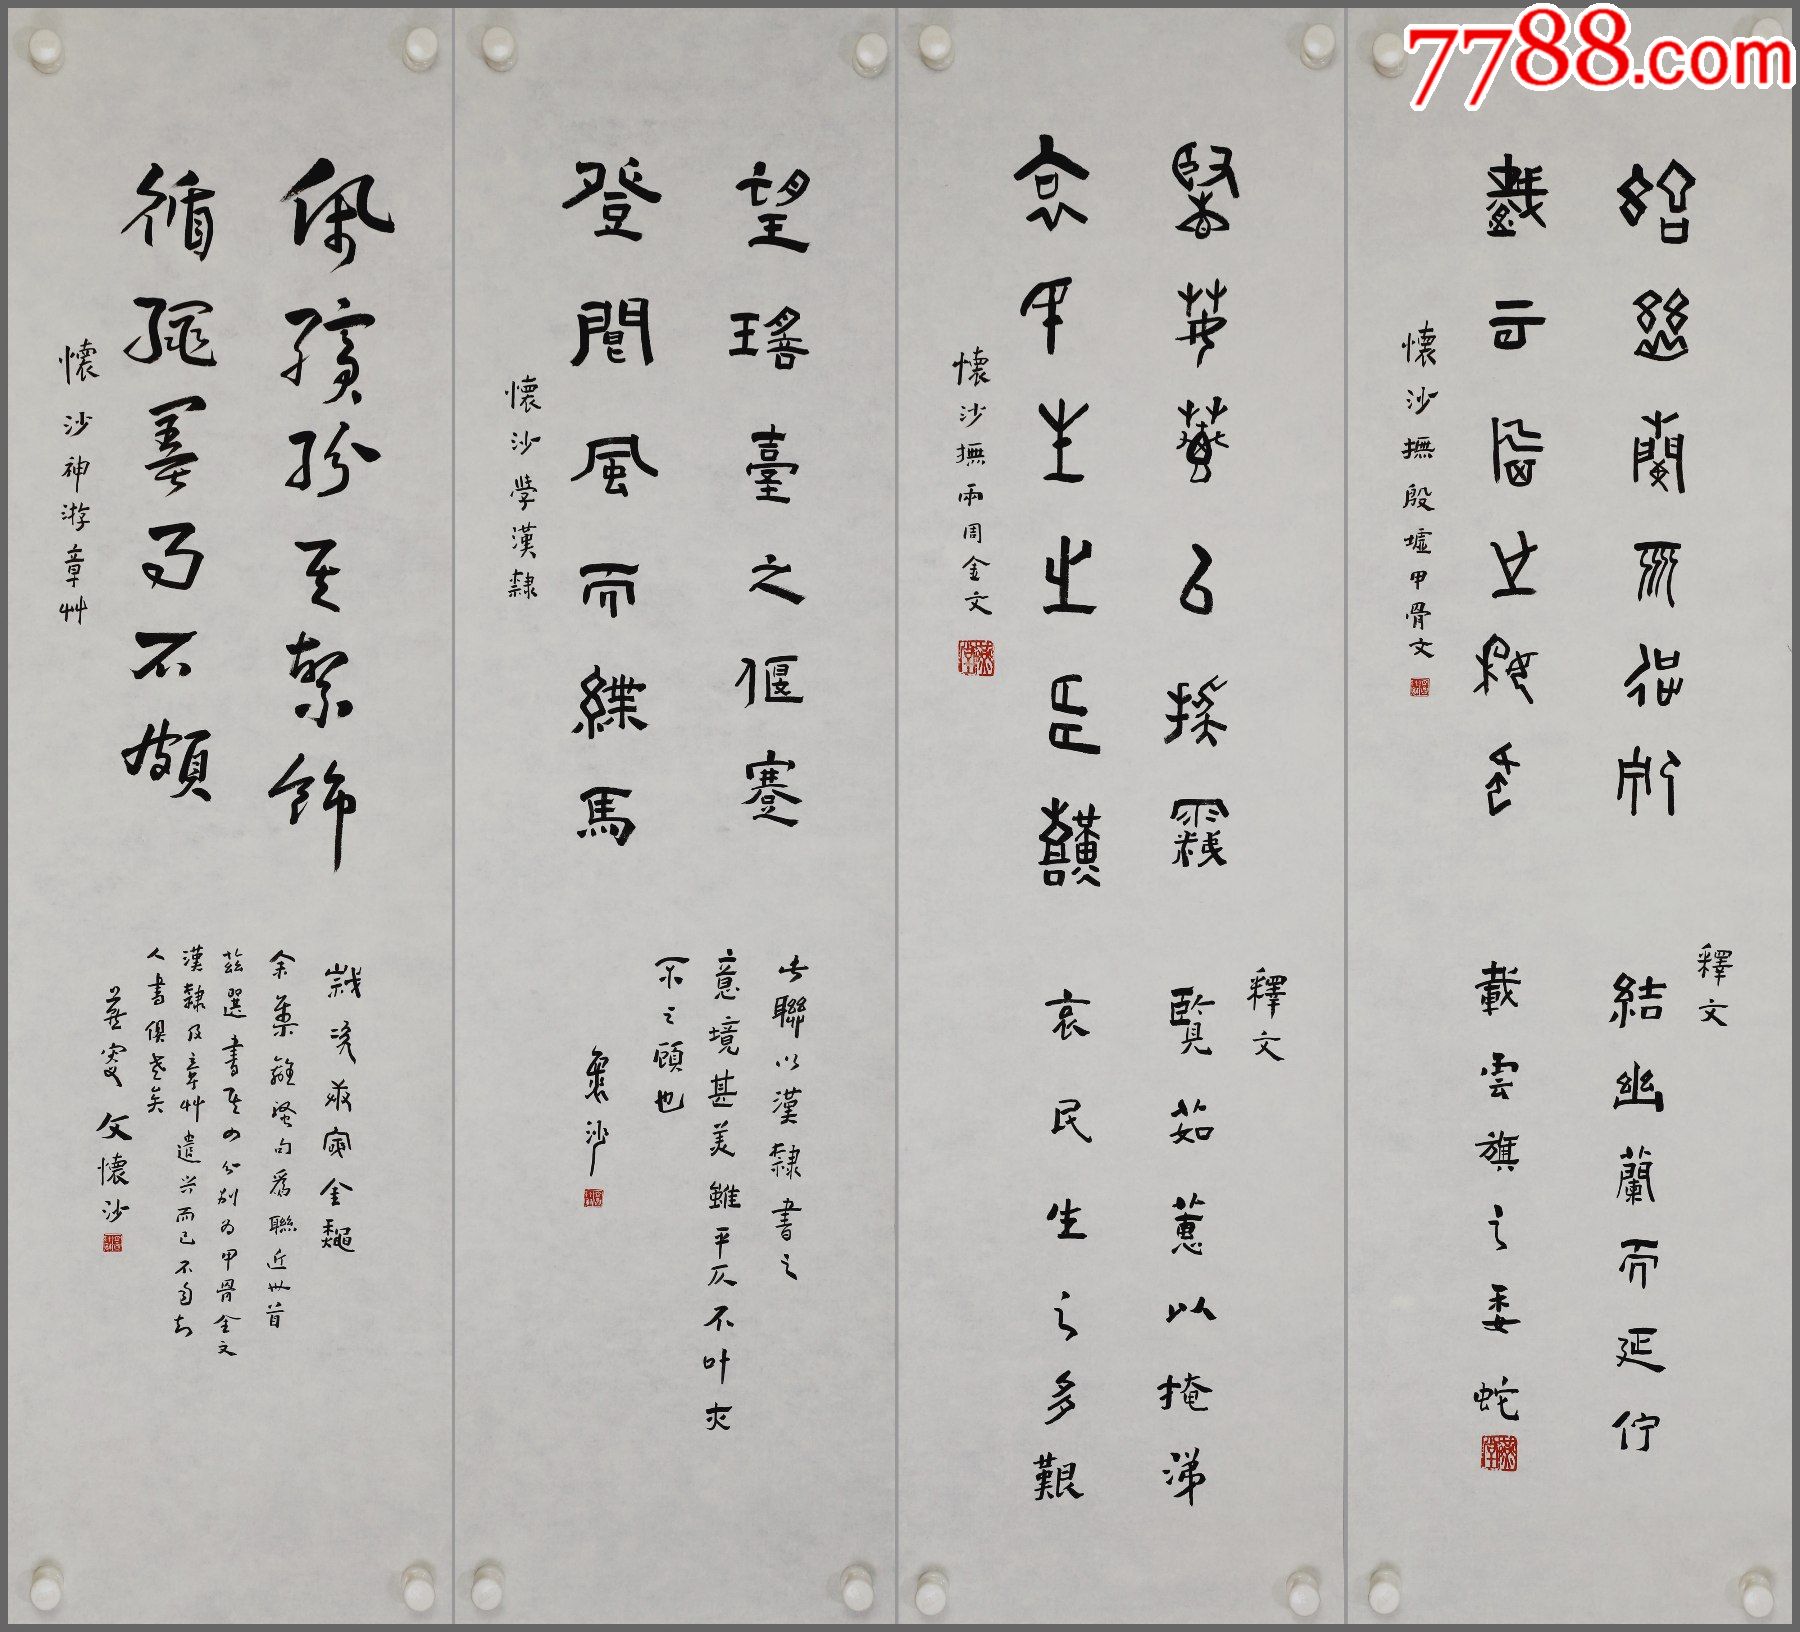 7788.com
結幽蘭而延佇
載雲旗之委蛇
懷沙撫殷墟甲骨文
釋文
結幽蘭而延佇
載雲旗之委蛇
覽茹蕙以掩涕
哀民生之多艱
懷沙撫兩周金文
釋文
覽茹蕙以掩涕
哀民生之多艱
望瑤臺之偃蹇
登閬風而緤馬
懷沙學漢隸
此聯以漢隸書之
意境甚美雖平仄不叶夾
不之顧也
懷沙
佩繽紛其繁飾
循繩墨而不頗
懷沙神游章艸
余集離騷句爲聯近卅首
茲選書其四分別为甲骨金文
漢隸及章艸遣兴而已不自知
人書俱老矣
燕叟文懷沙